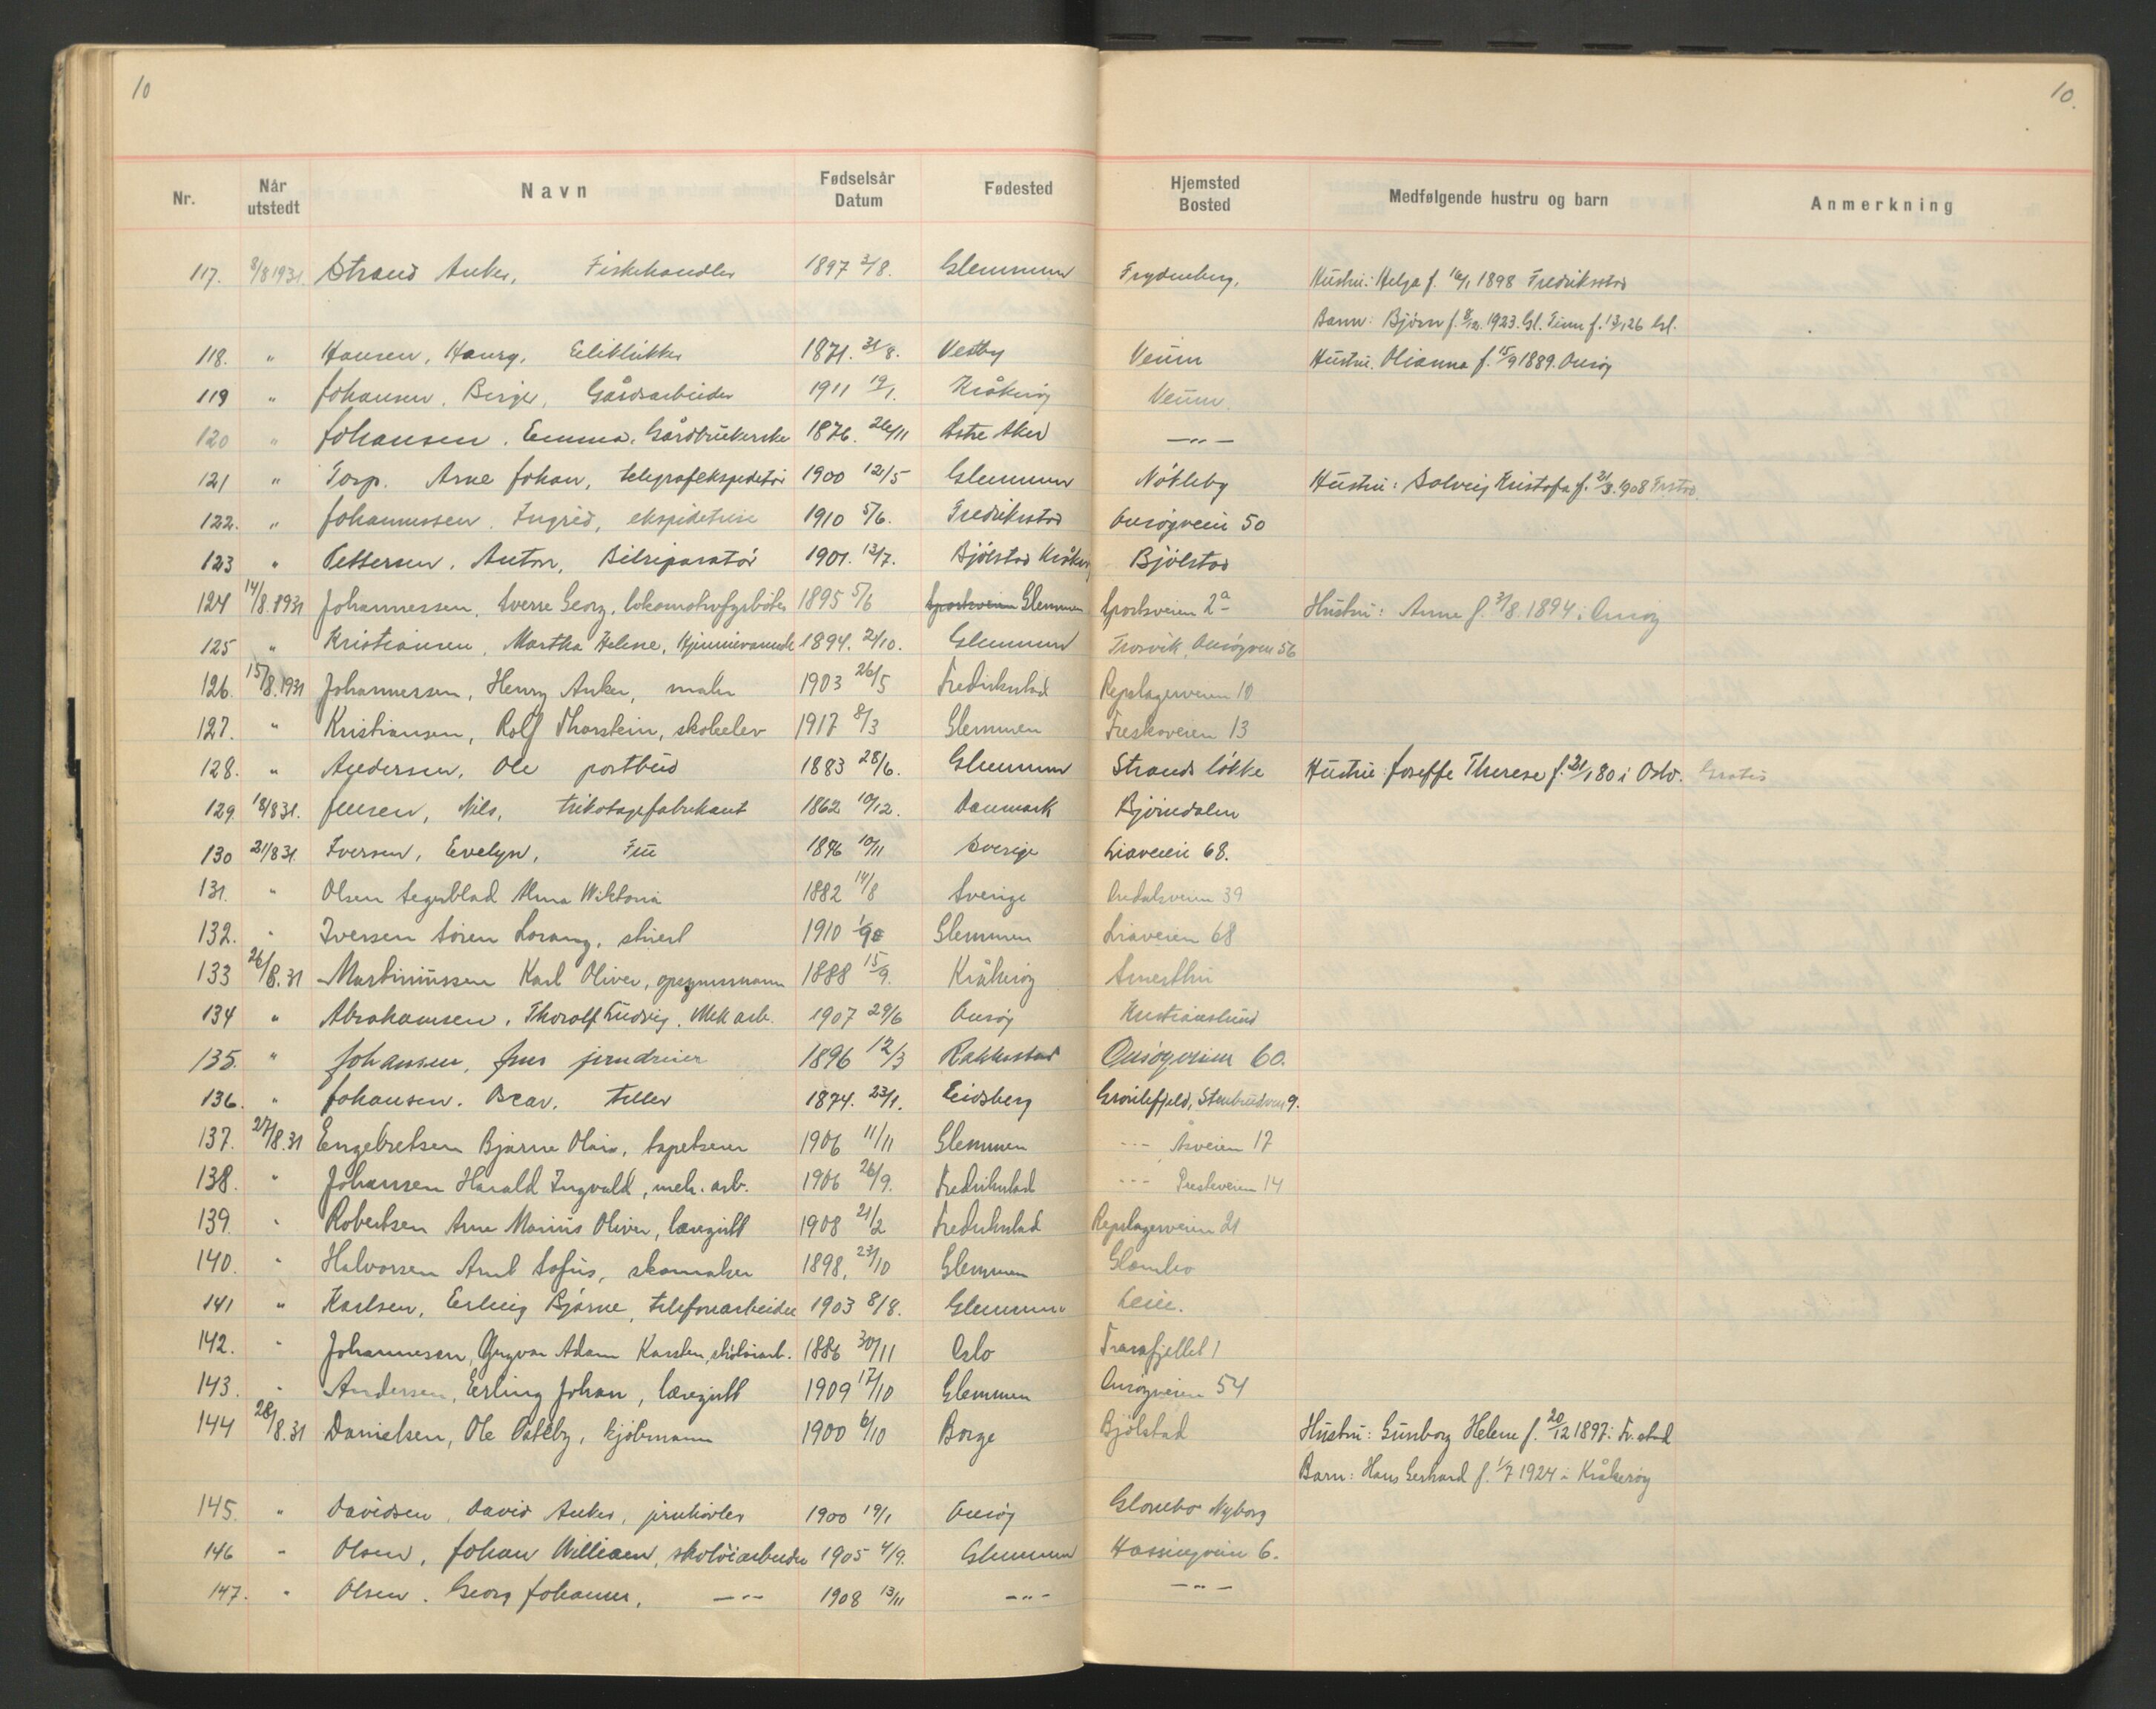 10
10.
Nr. Når utstedt Navn Fødselsår Datum Fødested Hjemsted Bosted Medfølgende hustru og barn Anmerkning
117. 8/8 1931. Strand Anker, Fiskehandler 1897 3/8. Glemmen Frydenberg, Hustru: Helga f. 1898 Fredrikstad
Barn: Björn f. 8/12. 1923. Gl. Finn f. 13/1 26 Gl.
118. " Hansen, Haury, 1871. 31/8. Vestby Veum Hustru. Olianna f. 15/9 1889. Onsöy
119 " Johansen, Birger, Gårdsarbeider 1911 19/1. Kråkeröy Veum.
120 " Johansen, Emma, Gårdbrukerske 1876. 26/11 Östre Aker —"—
121 " Torp. Arne Johan, telegrafekspeditör 1900 12/5 Glemmen Nökleby Hustru: Solveig Kristofa f. 1908 Frstad.
122. " Johannessen, Ingrid, ekspeditrise 1910 5/6. Fredrikstad Onsöyveien 50
123 " Pettersen, Anton, Bilreparatör 1901. 13/7. Bjölstad Kråkeröy Bjölstad
124 14/8.1931 Johannessen, Sverre Georg, lokomotivfyrböter 1895 5/6 Glemmen Sportsveien 2a Hustru: Anne f. 31/8. 1894 i Onsöy
125 " Kristiansen, Martha Helene, Hjemmeværende 1894. 21/10. Glemmen Trosvik, Onsöyveien 56
126. 15/8.1931 Johannessen, Henry Anker, maler 1903 26/5 Fredrikstad Repslagerveien 10
127. " Kristiansen, Rolf Thorstein, skoleelev 1917 8/3 Glemmen Freskoveien 13
128. " Andersen, Ole postbud 1883 28/6. Glemmen Strands lökke Hustru Joseffe Therese f. 21/1 80 i Oslo. Gratis
129. 18/8 31. Jensen, Nils, trikotagefabrikant 1862 10/12. Danmark Björndalen
130 21/8 31. Iversen, Evelyn, Fru 1896 10/11 Sverige Liaveien 68.
131. " Olsen Segerblad Alma Wiktoria 1882 14/8 Sverige 39
132. " Iversen Sören Lorang, stuert 1910 Glemmen Liaveien 68
133 26/8.31 Martiniussen Karl Oliver, opsynsmann 1888 15/9. Kråkeröy
134 " Abrahamsen, Thoralf Ludvig, Mek arb. 1907 29/6 Onsöy Kristianslund
135. " Johansen, Jens jerndreier 1896 12/3 Rakkestad Onsöyveien 60.
136. " Johansen. Oscar. teller 1874. 23/1. Eidsberg Gronlifjeld, Stenbrudveien 9.
137. 27/8.31 Engebretsen Bjarne Olav, tapetserer 1906 11/11 Glemmen --- Åsveien 17
138. " Johansen Harald Ingvald, mek. arb. 1906 26/9. Fredrikstad --- Presteveien 14
139. " Robertsen Arne Marius Oliver, læregutt 1908 21/2 Fredrikstad Repslagerveien 21
140. " Halvorsen Arnt Sofus, skomaker 1898, 23/10 Glemmen Glombo
141 " Karlsen, Erling Bjarne, telefonarbeider 1903 8/8. Glemmen Leie.
142. " Johannesen, Yngvar Adam Karsten, skotöiarb. 1886 30/11 Oslo Trarafjellet 1
143. " Andersen, Erling Johan, læregutt 1909 17/10 Glemmen Onsöyveien 54
144 28/8.31 Danielsen, Ole Östeby, kjöbmann 1900 6/10 Borge Bjölstad Hustru: Gunborg Helene f. 20/12 1897 i Fr.stad
Barn: Hans Gerhard f. 1/7 1924 i Kråkeröy
145. " Davidsen, David Anker, jernhövler 1900 19/1 Onsöy Glombo Nyborg
146 " Olsen, Johan William, skotöiarbeider 1905 4/9. Glemmen Hassingveien 6.
147. " Olsen. Georg Johannes, —"— 1908 13/11 —"— —"—